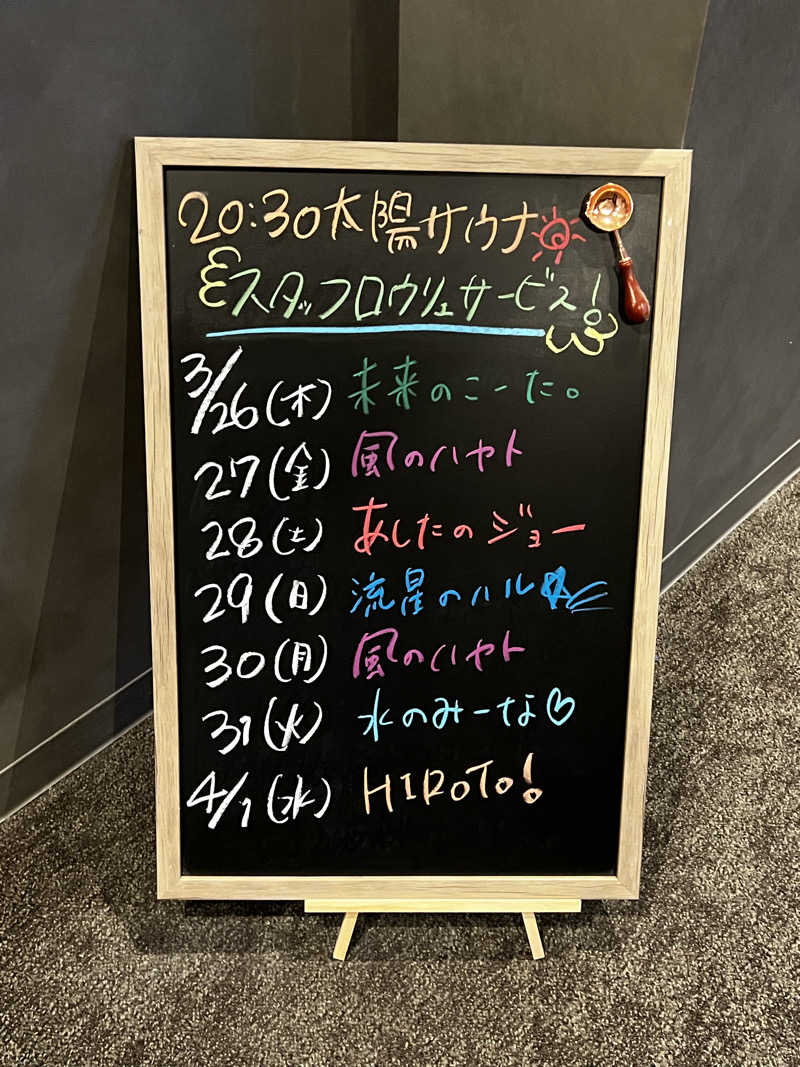 20:30太陽サウナ
スタッフロウリュサービス!
3/26(木) 未来のこーた。
27(金) 風のハヤト
28(土) あしたのジョー
29(日) 流星のハル
30(月) 風のハヤト
31(火) 水のみーな♡
4/1(水) HIROTO!